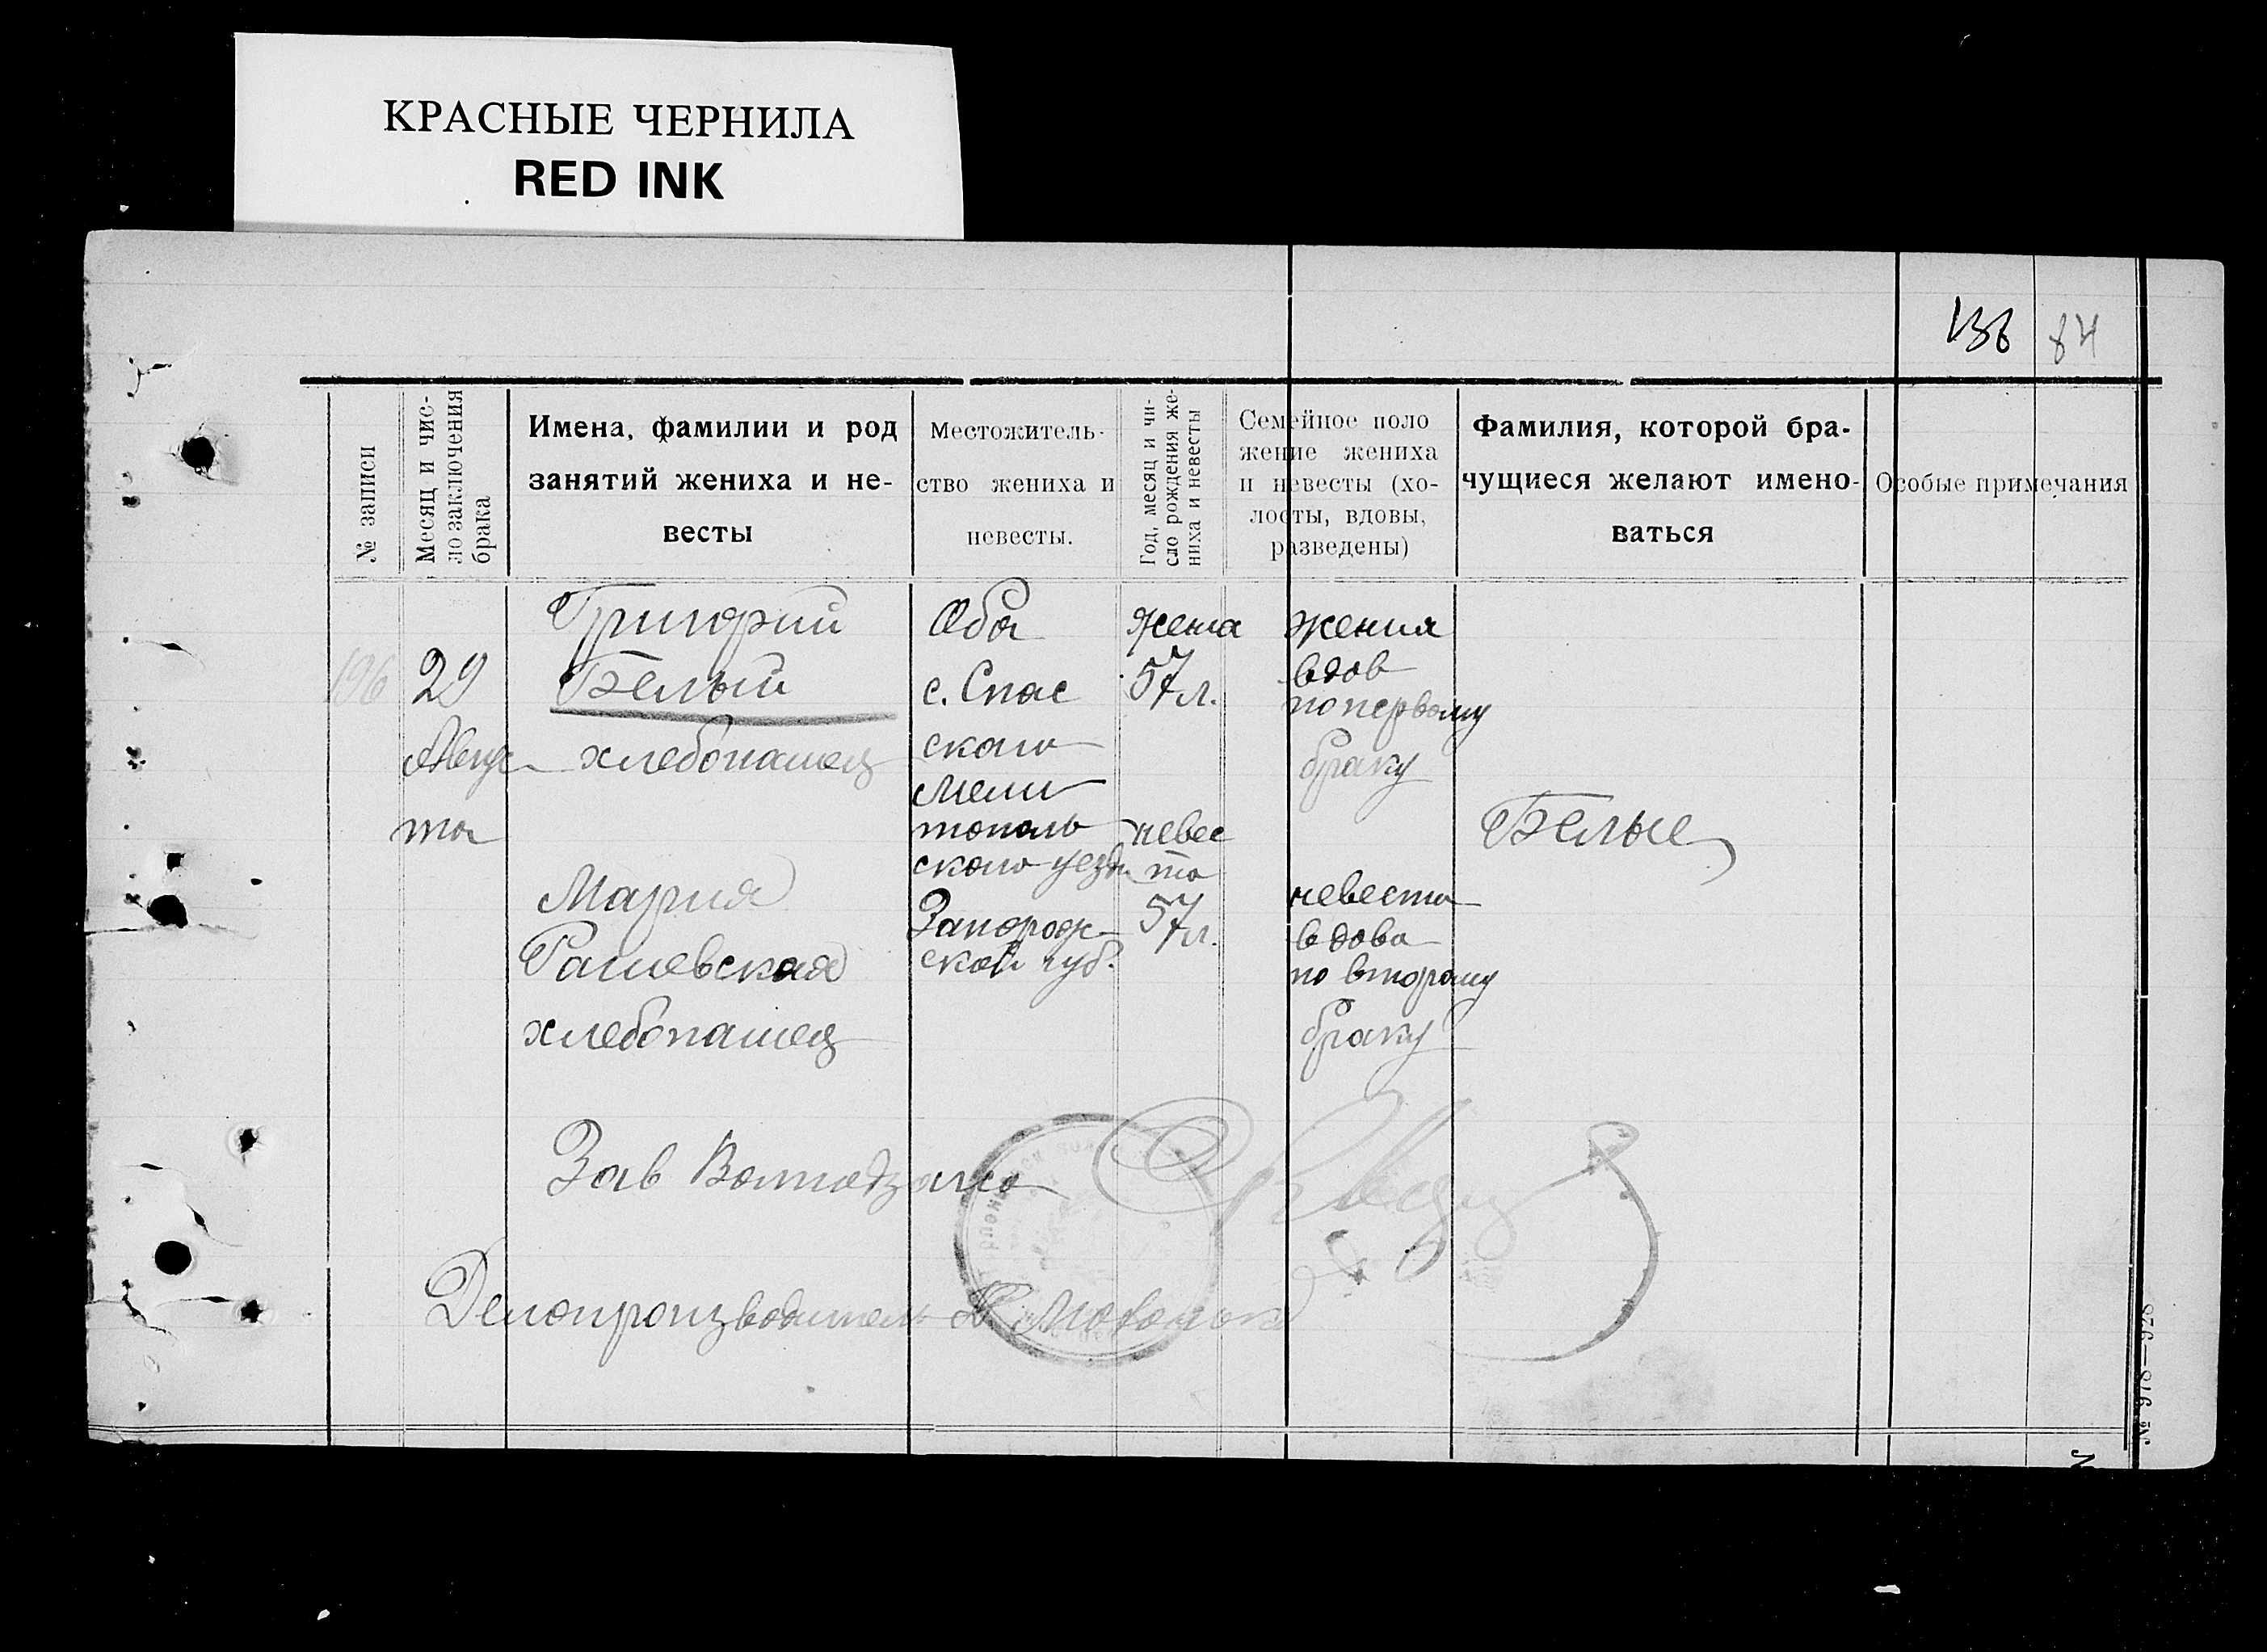 КРАСНЫЕ ЧЕРНИЛА
RED INK
136 84
№ записи
Месяц и чис-
ло заключения
брака
Имена, фамилии и род
занятий жениха и не-
весты
Местожитель-
ство жениха и
невесты.
Год, месяц и чи-
сло рождения же-
ниха и невесты
Семейное поло
жение жениха
и невесты (хо-
лосты, вдовы,
разведены)
Фамилия, которой бра-
чущиеся желают имено-
ваться
Особые примечания
196
29
Авгус
та
Григорий
Белый
хлебопашец
Мария
Рашевская
хлебопашец
Оба
с. Спас
ского
Мели
тополь
ского уезда
Запорож-
ской губ.
57 л.
невес
та
57 л.
вдов
по первому
браку
невеста
вдова
по второму
браку
Белые
Зав
Делопроизводитель
№ 918—928